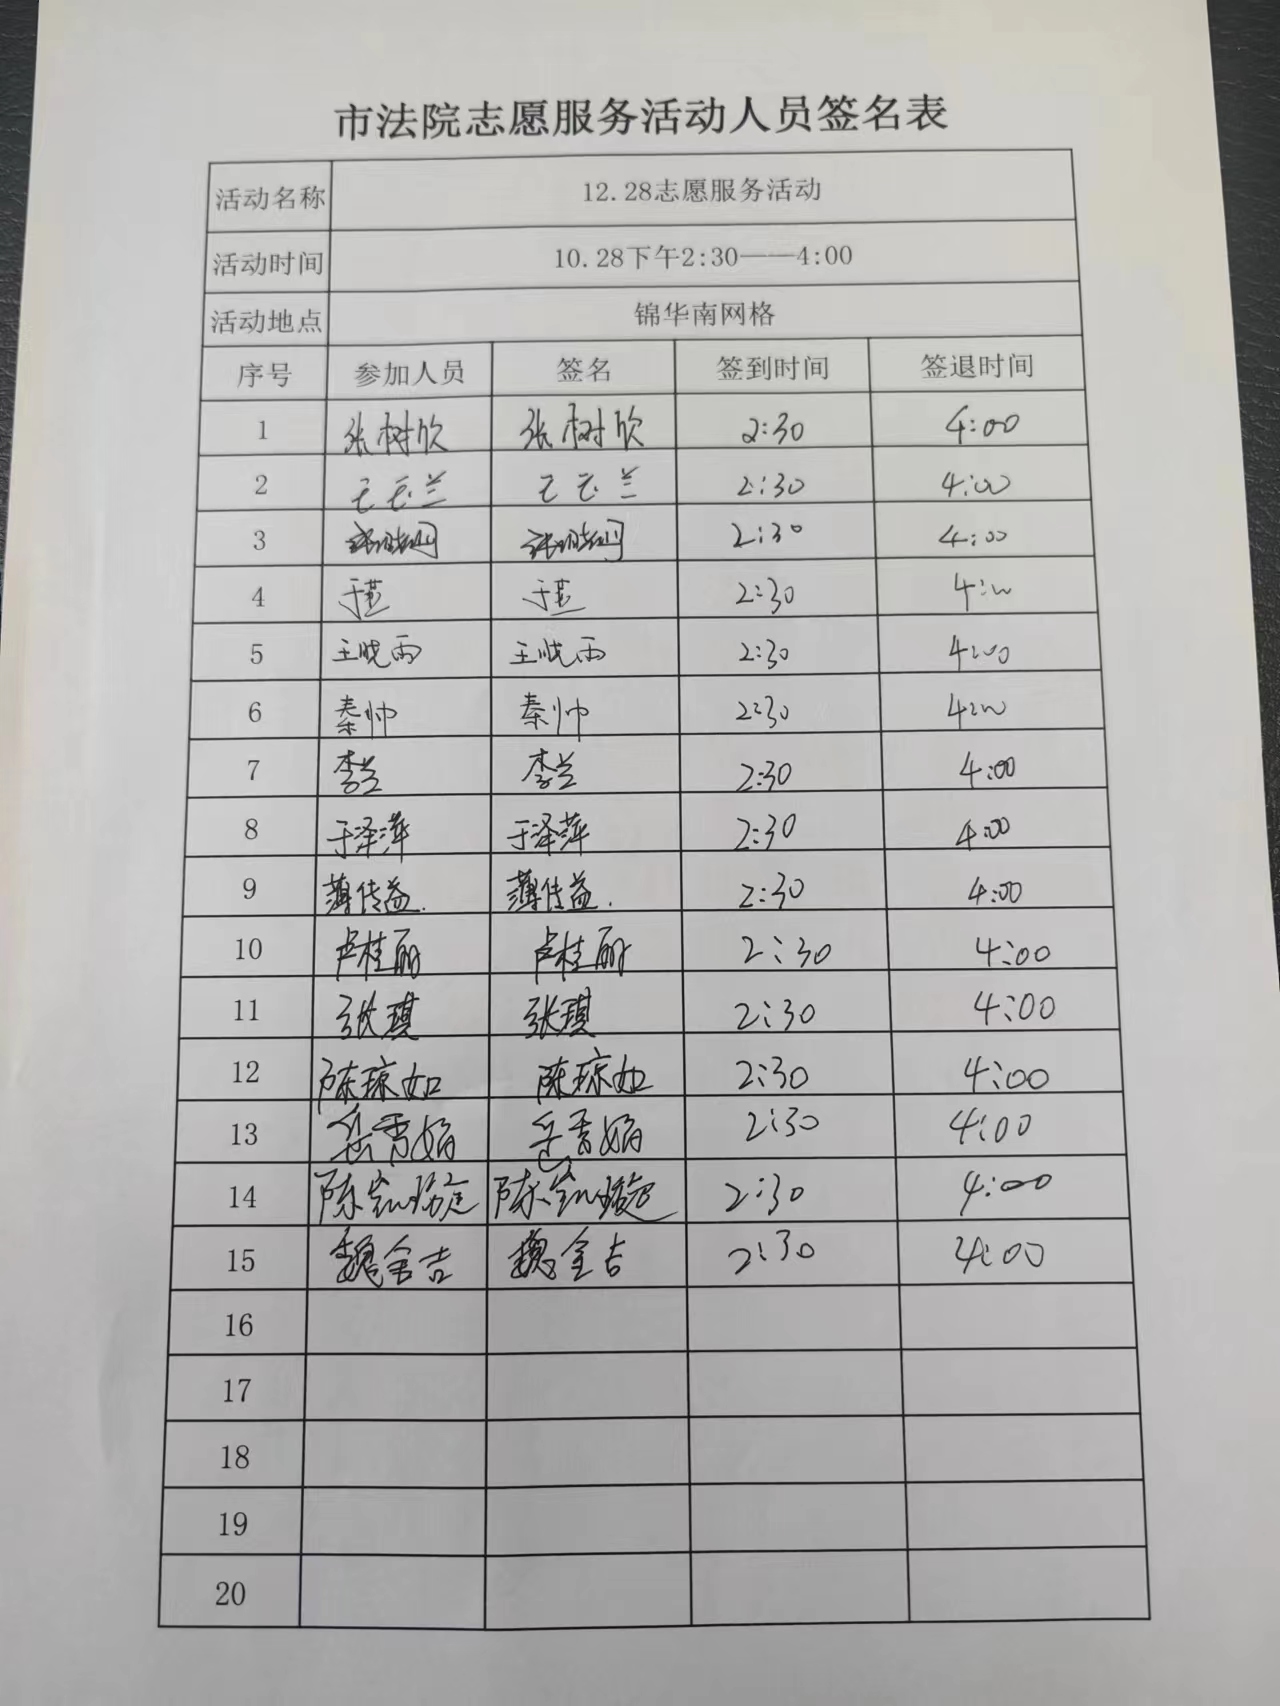 市法院志愿服务活动人员签名表
活动名称 12.28志愿服务活动
活动时间 10.28下午2:30——4:00
活动地点 锦华南网格
序号 参加人员 签名 签到时间 签退时间
1 张树欣 张树欣 2:30 4:00
2 王玉兰 王玉兰 2:30 4:00
3 2:30 4:00
4 2:30 4:00
5 王晓雨 王晓雨 2:30 4:00
6 秦帅 秦帅 2:30 4:00
7 李兰 李兰 2:30 4:00
8 于泽萍 于泽萍 2:30 4:00
9 薄传益. 薄传益. 2:30 4:00
10 卢桂丽 卢桂丽 2:30 4:00
11 张琪 张琪 2:30 4:00
12 陈琼如 陈琼如 2:30 4:00
13 岳秀娟 岳秀娟 2:30 4:00
14 陈凯璇 陈凯璇 2:30 4:00
15 魏金吉 魏金吉 2:30 4:00
16
17
18
19
20